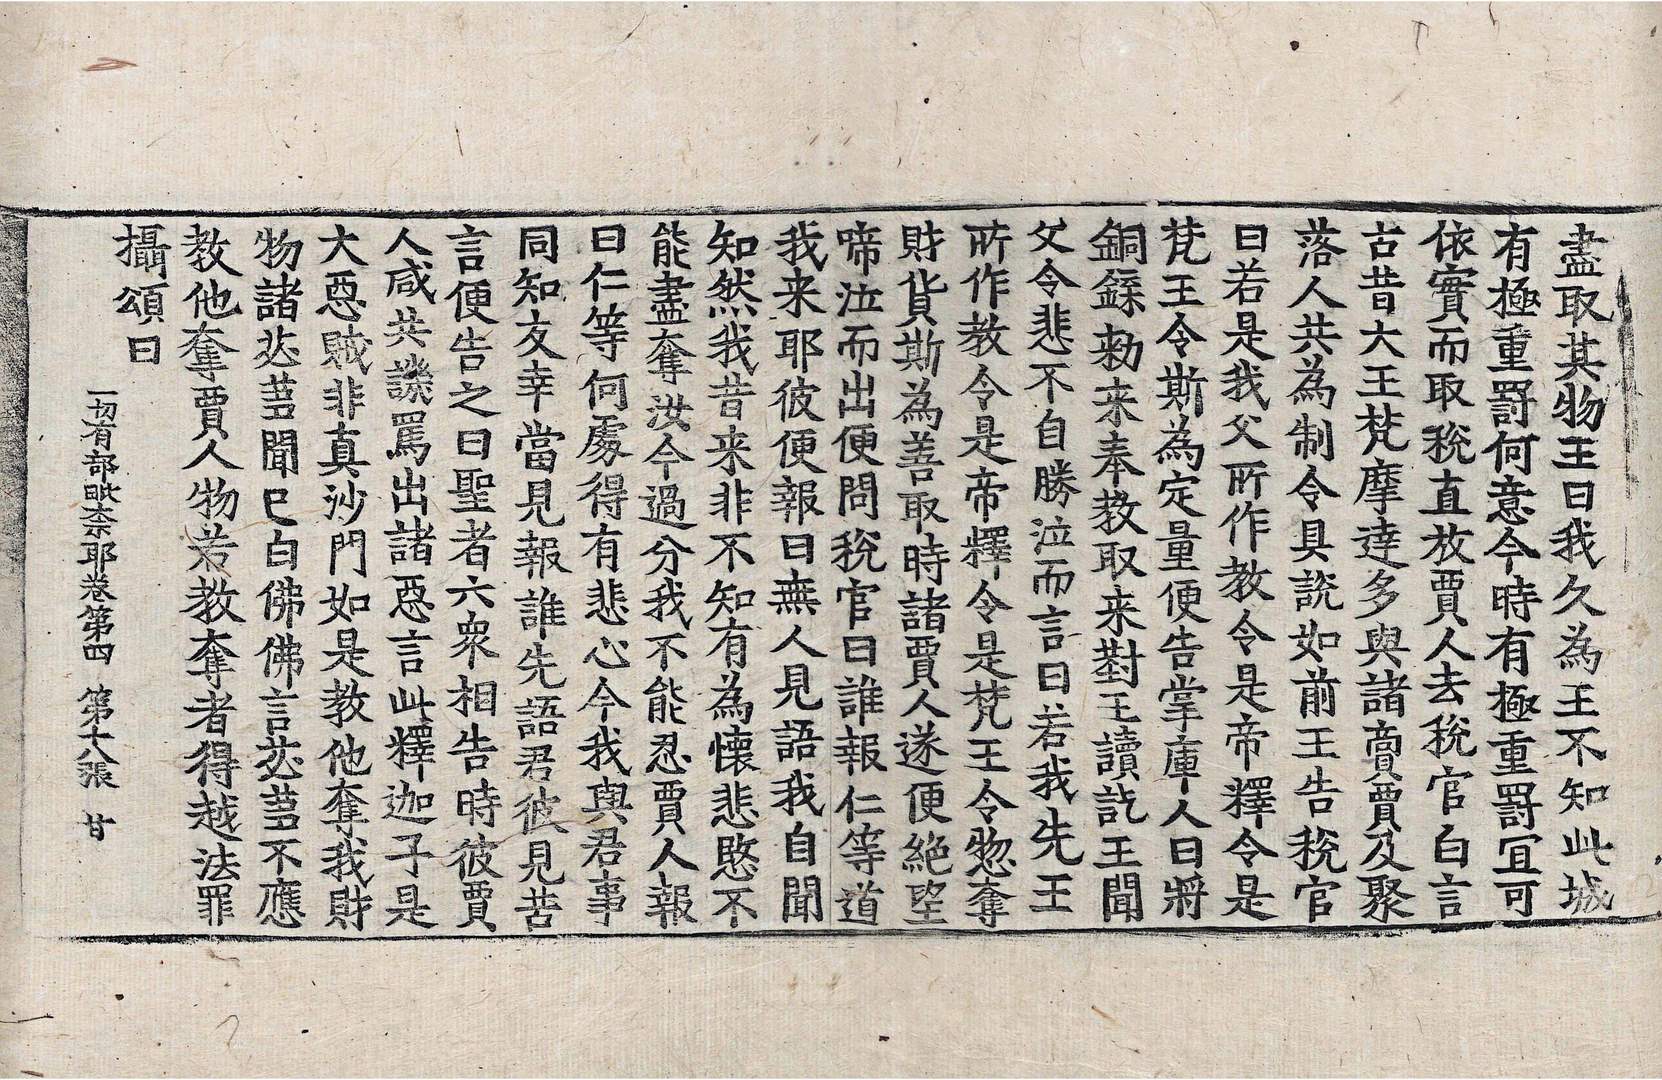 盡取其物王曰我久為王不知此城
有極重罸何意今時有極重罸宜可
依實而取稅直放賈人去稅官白言
古昔大王梵摩達多與諸商賈及聚
落人共為制令具說如前王告稅官
曰若是我父所作教令是帝釋令是
梵王令斯為定量便告掌庫人曰將
銅鍱勑来奉教取来對王讀訖王聞
父令悲不自勝泣而言曰若我先王
所作教令是帝釋令是梵王令惣奪
財貨斯為善取時諸賈人遂便絕望
啼泣而出便問稅官曰誰報仁等道
我来耶彼便報曰無人見語我自聞
知然我昔来非不知有為懷悲愍不
能盡奪汝今過分我不能忍賈人報
曰仁等何處得有悲心今我與君事
同知友幸當見報誰先語君彼見苦
言便告之曰聖者六衆相告時彼賈
人咸共譏罵出諸惡言此釋迦子是
大惡賊非真沙門如是教他奪我財
物諸苾蒭聞已白佛佛言苾蒭不應
教他奪賈人物若教奪者得越法罪
攝頌曰
一切有部毗奈耶卷第四 第十八張 甘